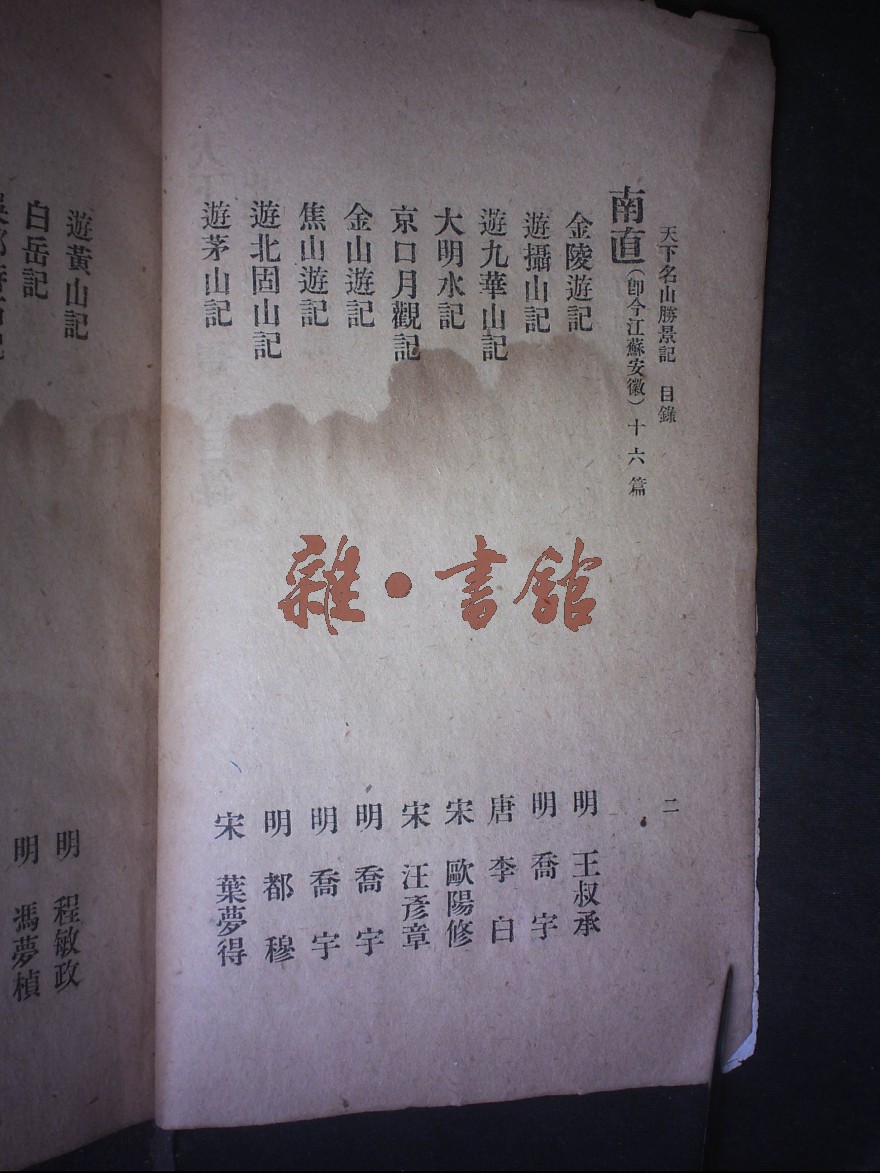 天下名山勝景記　目錄　二
南直（卽今江蘇安徽）十六篇
金陵遊記　明　王叔承
遊攝山記　明　喬宇
遊九華山記　唐　李白
大明水記　宋　歐陽修
京口月觀記　宋　汪彥章
金山遊記　明　喬宇
焦山遊記　明　喬宇
遊北固山記　明　都穆
遊茅山記　宋　葉夢得
遊黃山記　明　程敏政
白岳記　明　馮夢楨
雜·書館